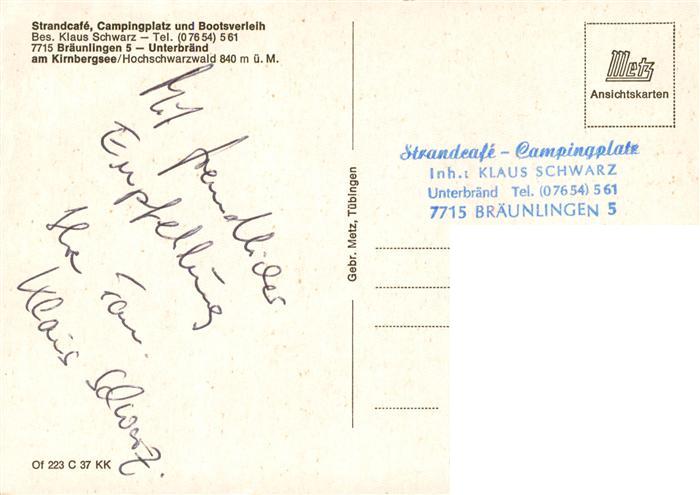 Strandcafé, Campingplatz und Bootsverleih
Bes. Klaus Schwarz — Tel. (0 76 54) 5 61
7715 Bräunlingen 5 — Unterbränd
am Kirnbergsee/Hochschwarzwald 840 m ü. M.
Mit freundlicher
Empfehlung
Ihre Fam.
Klaus Schwarz.
Of 223 C 37 KK
Gebr. Metz, Tübingen
Metz
Ansichtskarten
Strandcafé - Campingplatz
Inh.: KLAUS SCHWARZ
Unterbränd Tel. (0 76 54) 5 61
7715 BRÄUNLINGEN 5